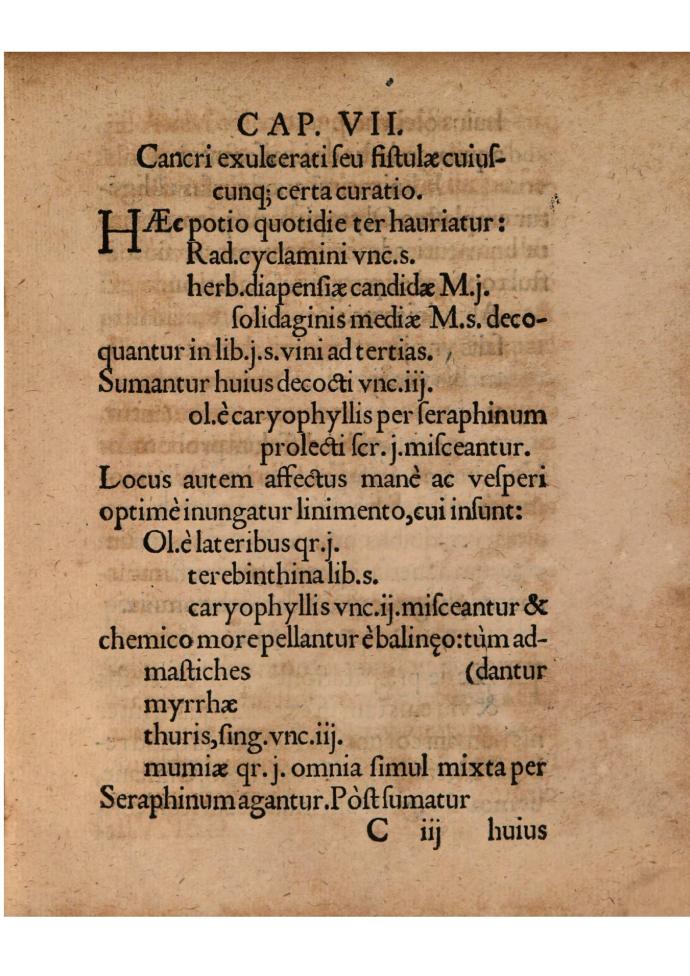 CAP. VII.
Cancri exulcerati ſeu fiſtulæ cuiuſ-
cunq; certa curatio.
HÆc potio quotidie ter hauriatur:
Rad.cyclamini vnc.s.
herb.diapenſiæ candidæ M.j.
ſolidaginis mediæ M.s. deco-
quantur in lib.j.s.vini ad tertias.
Sumantur huius decocti vnc.iij.
ol.è caryophyllis per ſeraphinum
prolecti ſcr.j.miſceantur.
Locus autem affectus manè ac veſperi
optimè inungatur linimento,cui inſunt:
Ol.è lateribus qr.j.
terebinthina lib.s.
caryophyllis vnc.ij.miſceantur &
chemico more pellantur è balinęo:tùm ad-
maſtiches (dantur
myrrhæ
thuris,ſing.vnc.iij.
mumiæ qr.j. omnia ſimul mixta per
Seraphinum agantur.Pòſt ſumatur
C iij huius